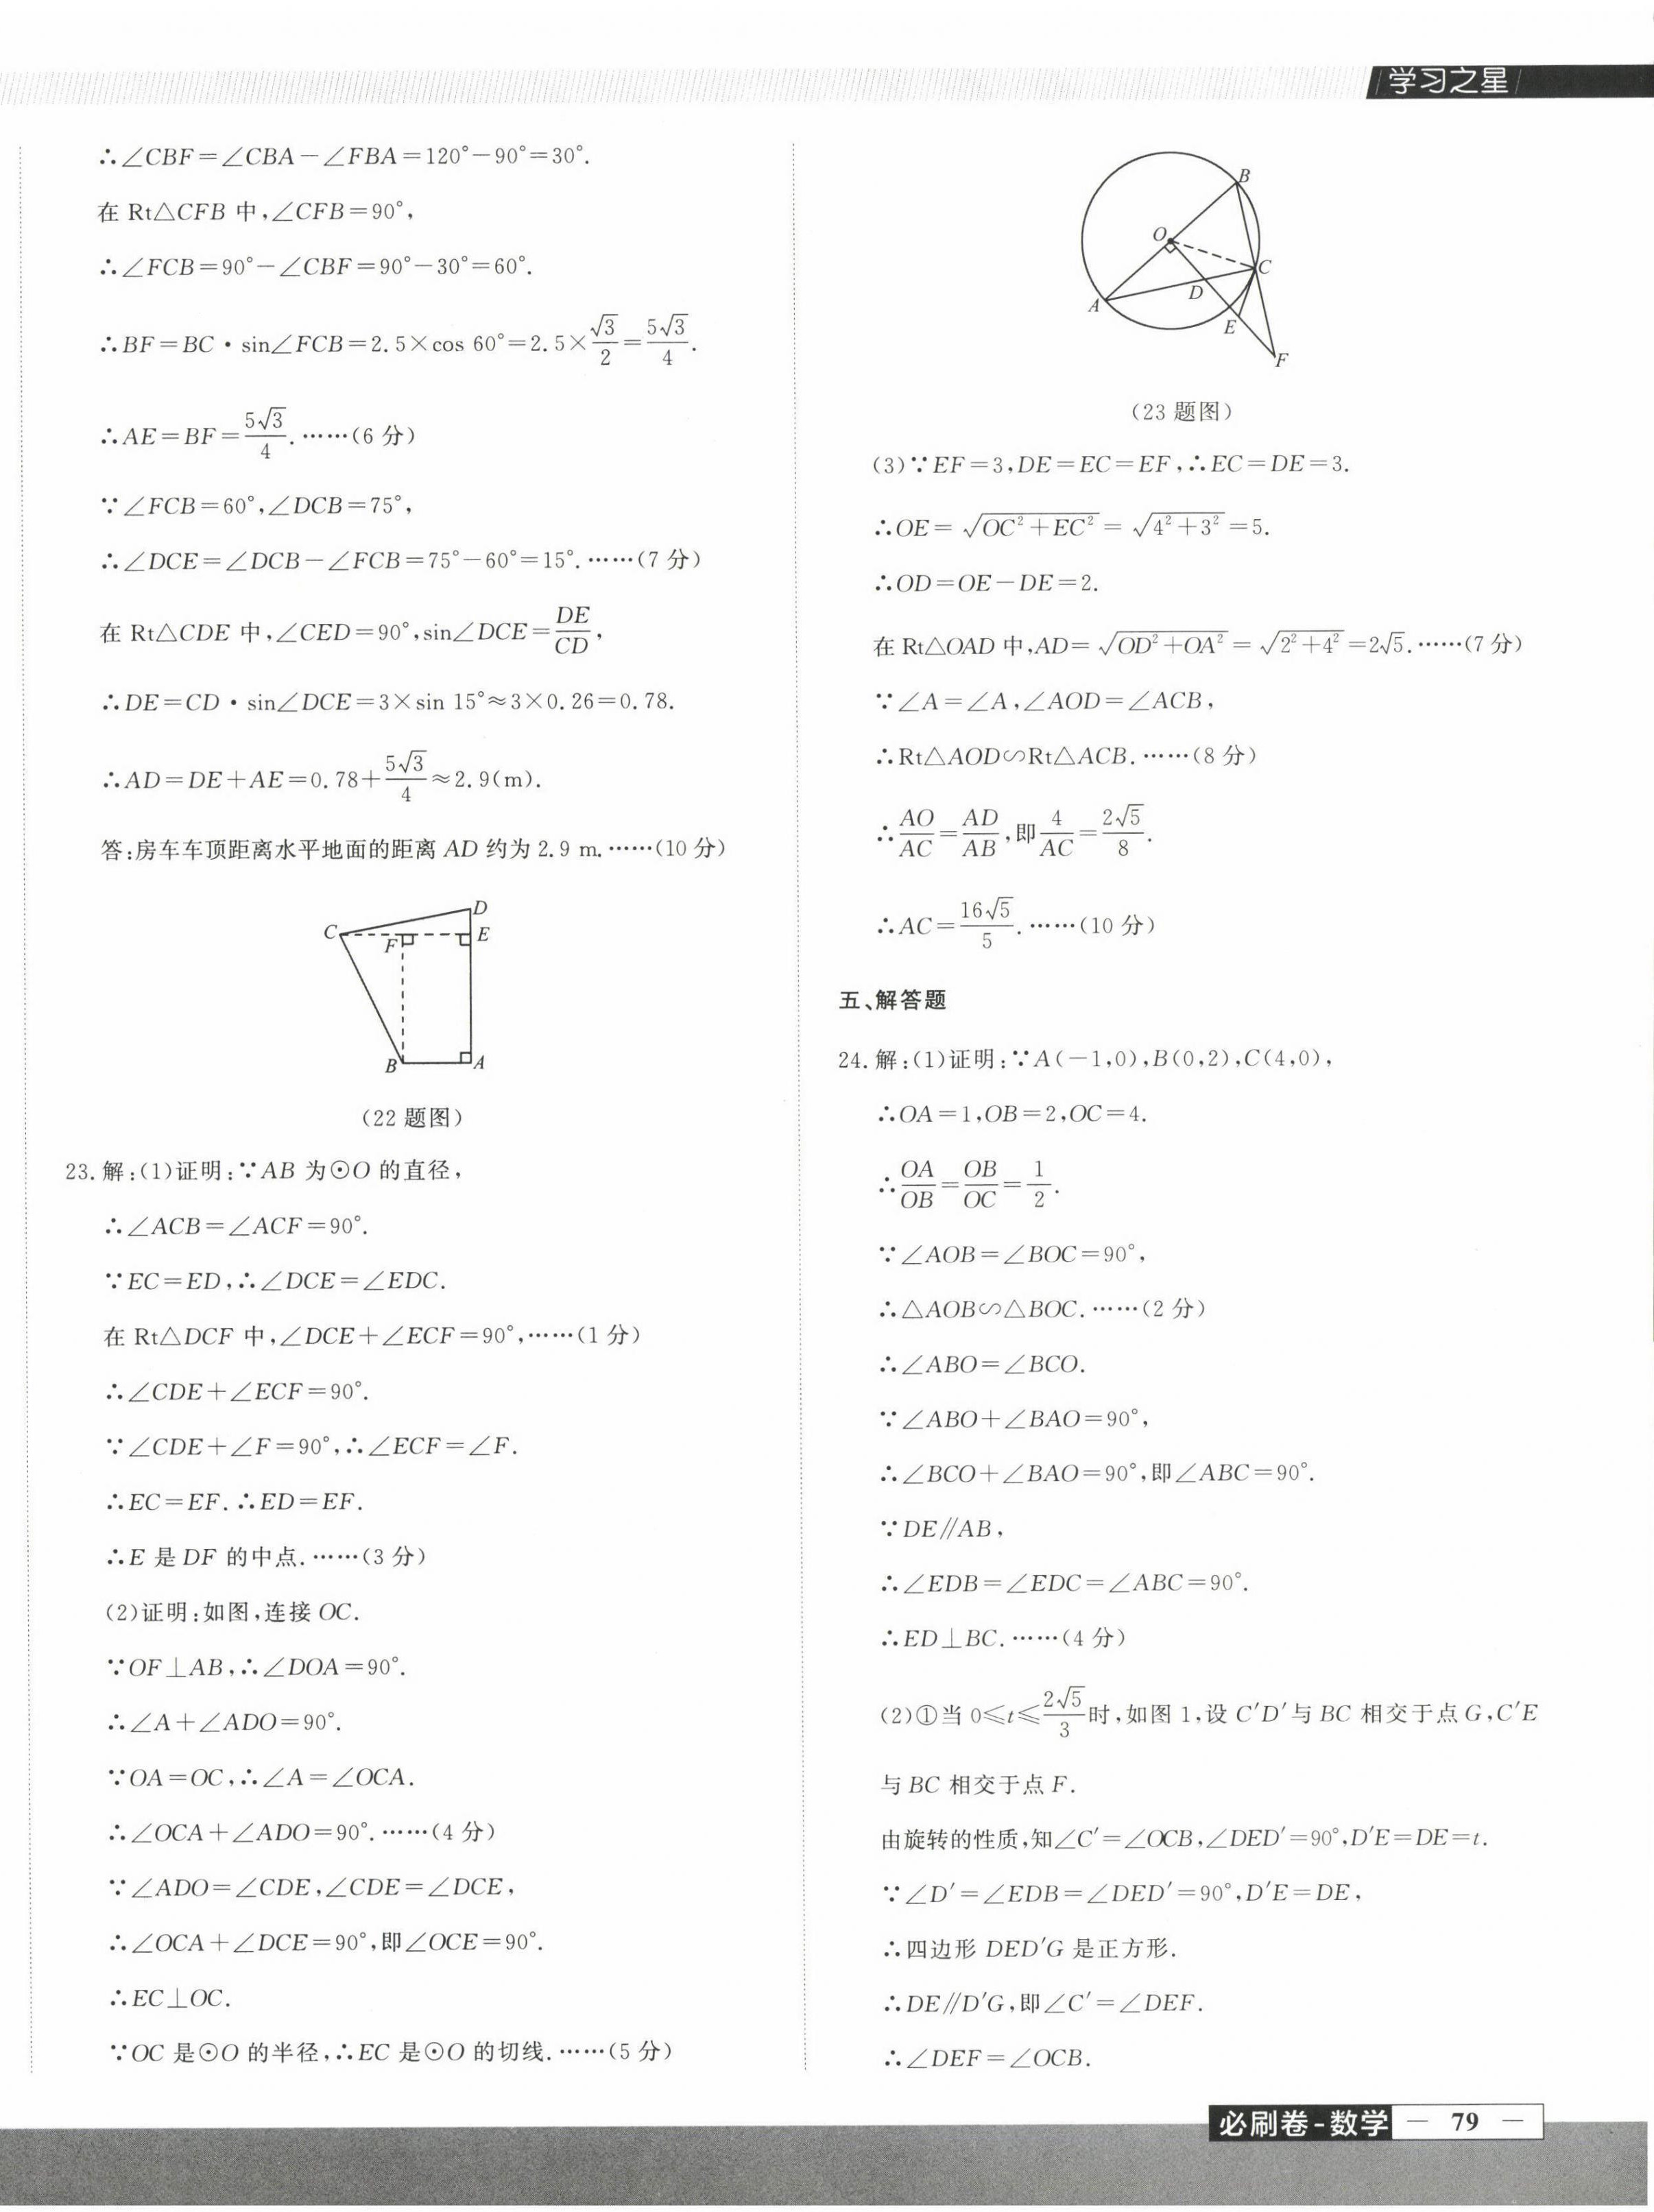 学习之星
∴∠CBF=∠CBA-∠FBA=120°-90°=30°.
在 Rt△CFB 中,∠CFB=90°,
∴∠FCB=90°-∠CBF=90°-30°=60°.
∴BF=BC·sin∠FCB=2.5×cos 60°=2.5×√3/2=5√3/4.
∴AE=BF=5√3/4.……(6 分)
∵∠FCB=60°,∠DCB=75°,
∴∠DCE=∠DCB-∠FCB=75°-60°=15°.……(7 分)
在 Rt△CDE 中,∠CED=90°,sin∠DCE=DE/CD,
∴DE=CD·sin∠DCE=3×sin 15°≈3×0.26=0.78.
∴AD=DE+AE=0.78+5√3/4≈2.9(m).
答:房车车顶距离水平地面的距离 AD 约为 2.9 m.……(10 分)
D
C
F
E
B
A
(22 题图)
23.解:(1)证明:∵AB 为⊙O 的直径,
∴∠ACB=∠ACF=90°.
∵EC=ED,∴∠DCE=∠EDC.
在 Rt△DCF 中,∠DCE+∠ECF=90°,……(1 分)
∴∠CDE+∠ECF=90°.
∵∠CDE+∠F=90°,∴∠ECF=∠F.
∴EC=EF.∴ED=EF.
∴E 是 DF 的中点.……(3 分)
(2)证明:如图,连接 OC.
∵OF⊥AB,∴∠DOA=90°.
∴∠A+∠ADO=90°.
∵OA=OC,∴∠A=∠OCA.
∴∠OCA+∠ADO=90°.……(4 分)
∵∠ADO=∠CDE,∠CDE=∠DCE,
∴∠OCA+∠DCE=90°,即∠OCE=90°.
∴EC⊥OC.
∵OC 是⊙O 的半径,∴EC 是⊙O 的切线.……(5 分)
B
O
C
D
A
E
F
(23 题图)
(3)∵EF=3,DE=EC=EF,∴EC=DE=3.
∴OE=√(OC²+EC²)=√(4²+3²)=5.
∴OD=OE-DE=2.
在 Rt△OAD 中,AD=√(OD²+OA²)=√(2²+4²)=2√5.……(7 分)
∵∠A=∠A,∠AOD=∠ACB,
∴Rt△AOD∽Rt△ACB.……(8 分)
∴AO/AC=AD/AB,即4/AC=2√5/8.
∴AC=16√5/5.……(10 分)
五、解答题
24.解:(1)证明:∵A(-1,0),B(0,2),C(4,0),
∴OA=1,OB=2,OC=4.
∴OA/OB=OB/OC=1/2.
∵∠AOB=∠BOC=90°,
∴△AOB∽△BOC.……(2 分)
∴∠ABO=∠BCO.
∵∠ABO+∠BAO=90°,
∴∠BCO+∠BAO=90°,即∠ABC=90°.
∵DE∥AB,
∴∠EDB=∠EDC=∠ABC=90°.
∴ED⊥BC.……(4 分)
(2)①当 0≤t≤2√5/3时,如图 1,设 C′D′与 BC 相交于点 G,C′E
与 BC 相交于点 F.
由旋转的性质,知∠C′=∠OCB,∠DED′=90°,D′E=DE=t.
∵∠D′=∠EDB=∠DED′=90°,D′E=DE,
∴四边形 DED′G 是正方形.
∴DE∥D′G,即∠C′=∠DEF.
∴∠DEF=∠OCB.
必刷卷-数学 — 79 —